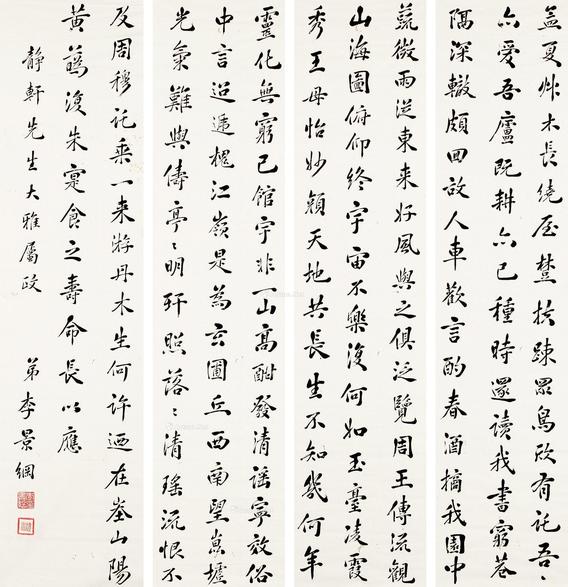 孟夏艸木長繞屋樹扶疎眾鳥欣有託吾
亦愛吾廬既耕亦已種時還讀我書窮巷
隔深轍頗回故人車歡言酌春酒摘我園中
蔬微雨從東來好風與之俱泛覽周王傳流觀
山海圖俯仰終宇宙不樂復何如玉臺凌霞
秀王母怡妙顏天地共長生不知幾何年
靈化無窮已館宇非一山高酣發清謠寧放俗
中言迢遞槐江嶺是為玄圃丘西南望崑墟
光氣難與儔亭〻明玕照落〻清瑤流恨不
及周穆託乘一來游丹木生何許迺在峚山陽
黃蘤復朱實食之壽命長以應
靜軒先生大雅屬政 弟李景綱